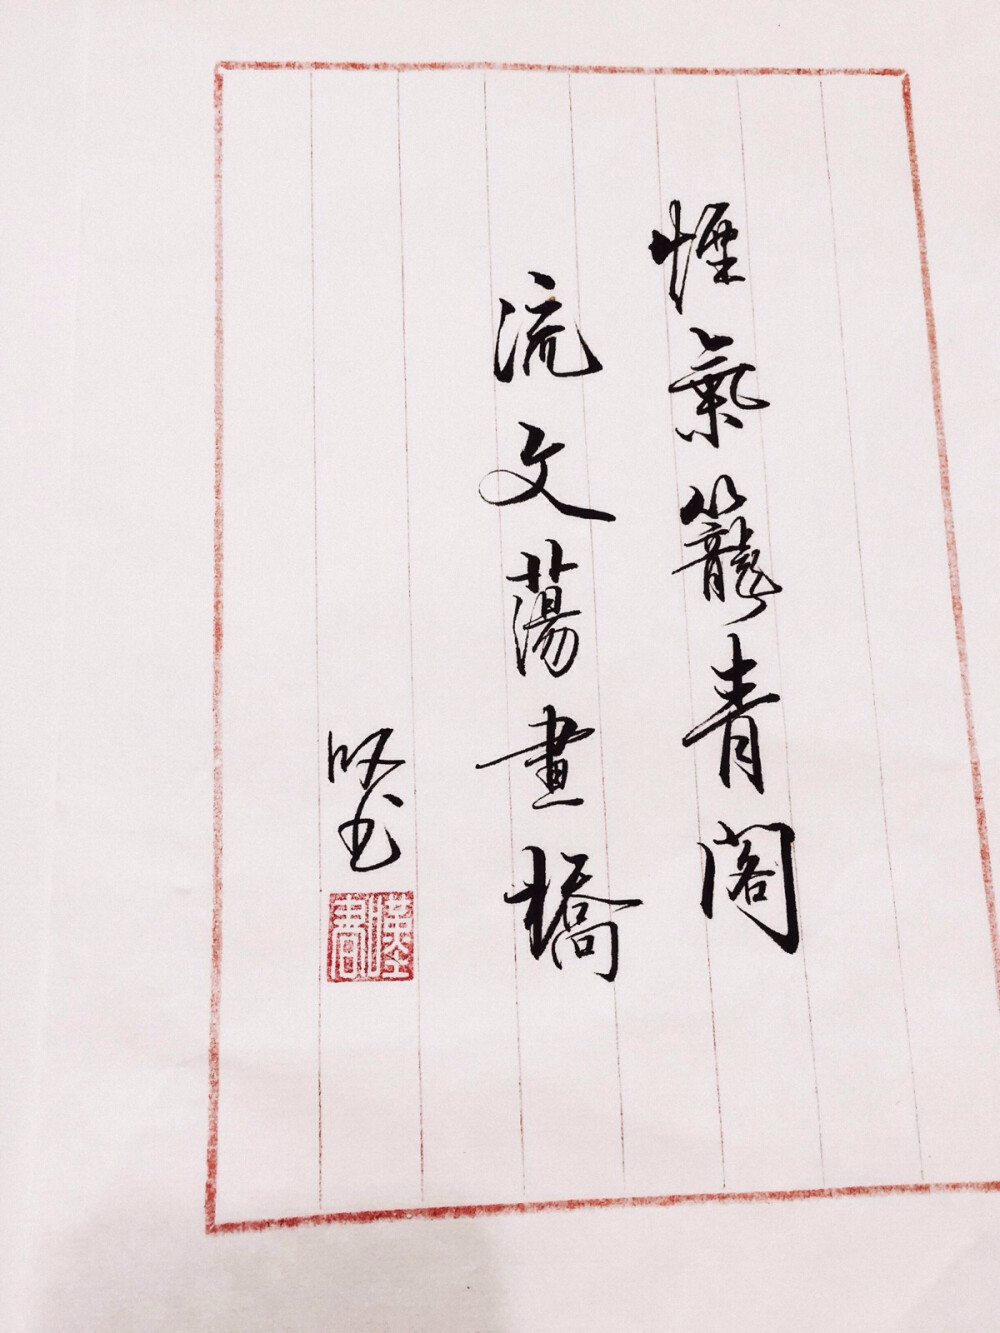 煙氣籠青閣
流文蕩畫橋